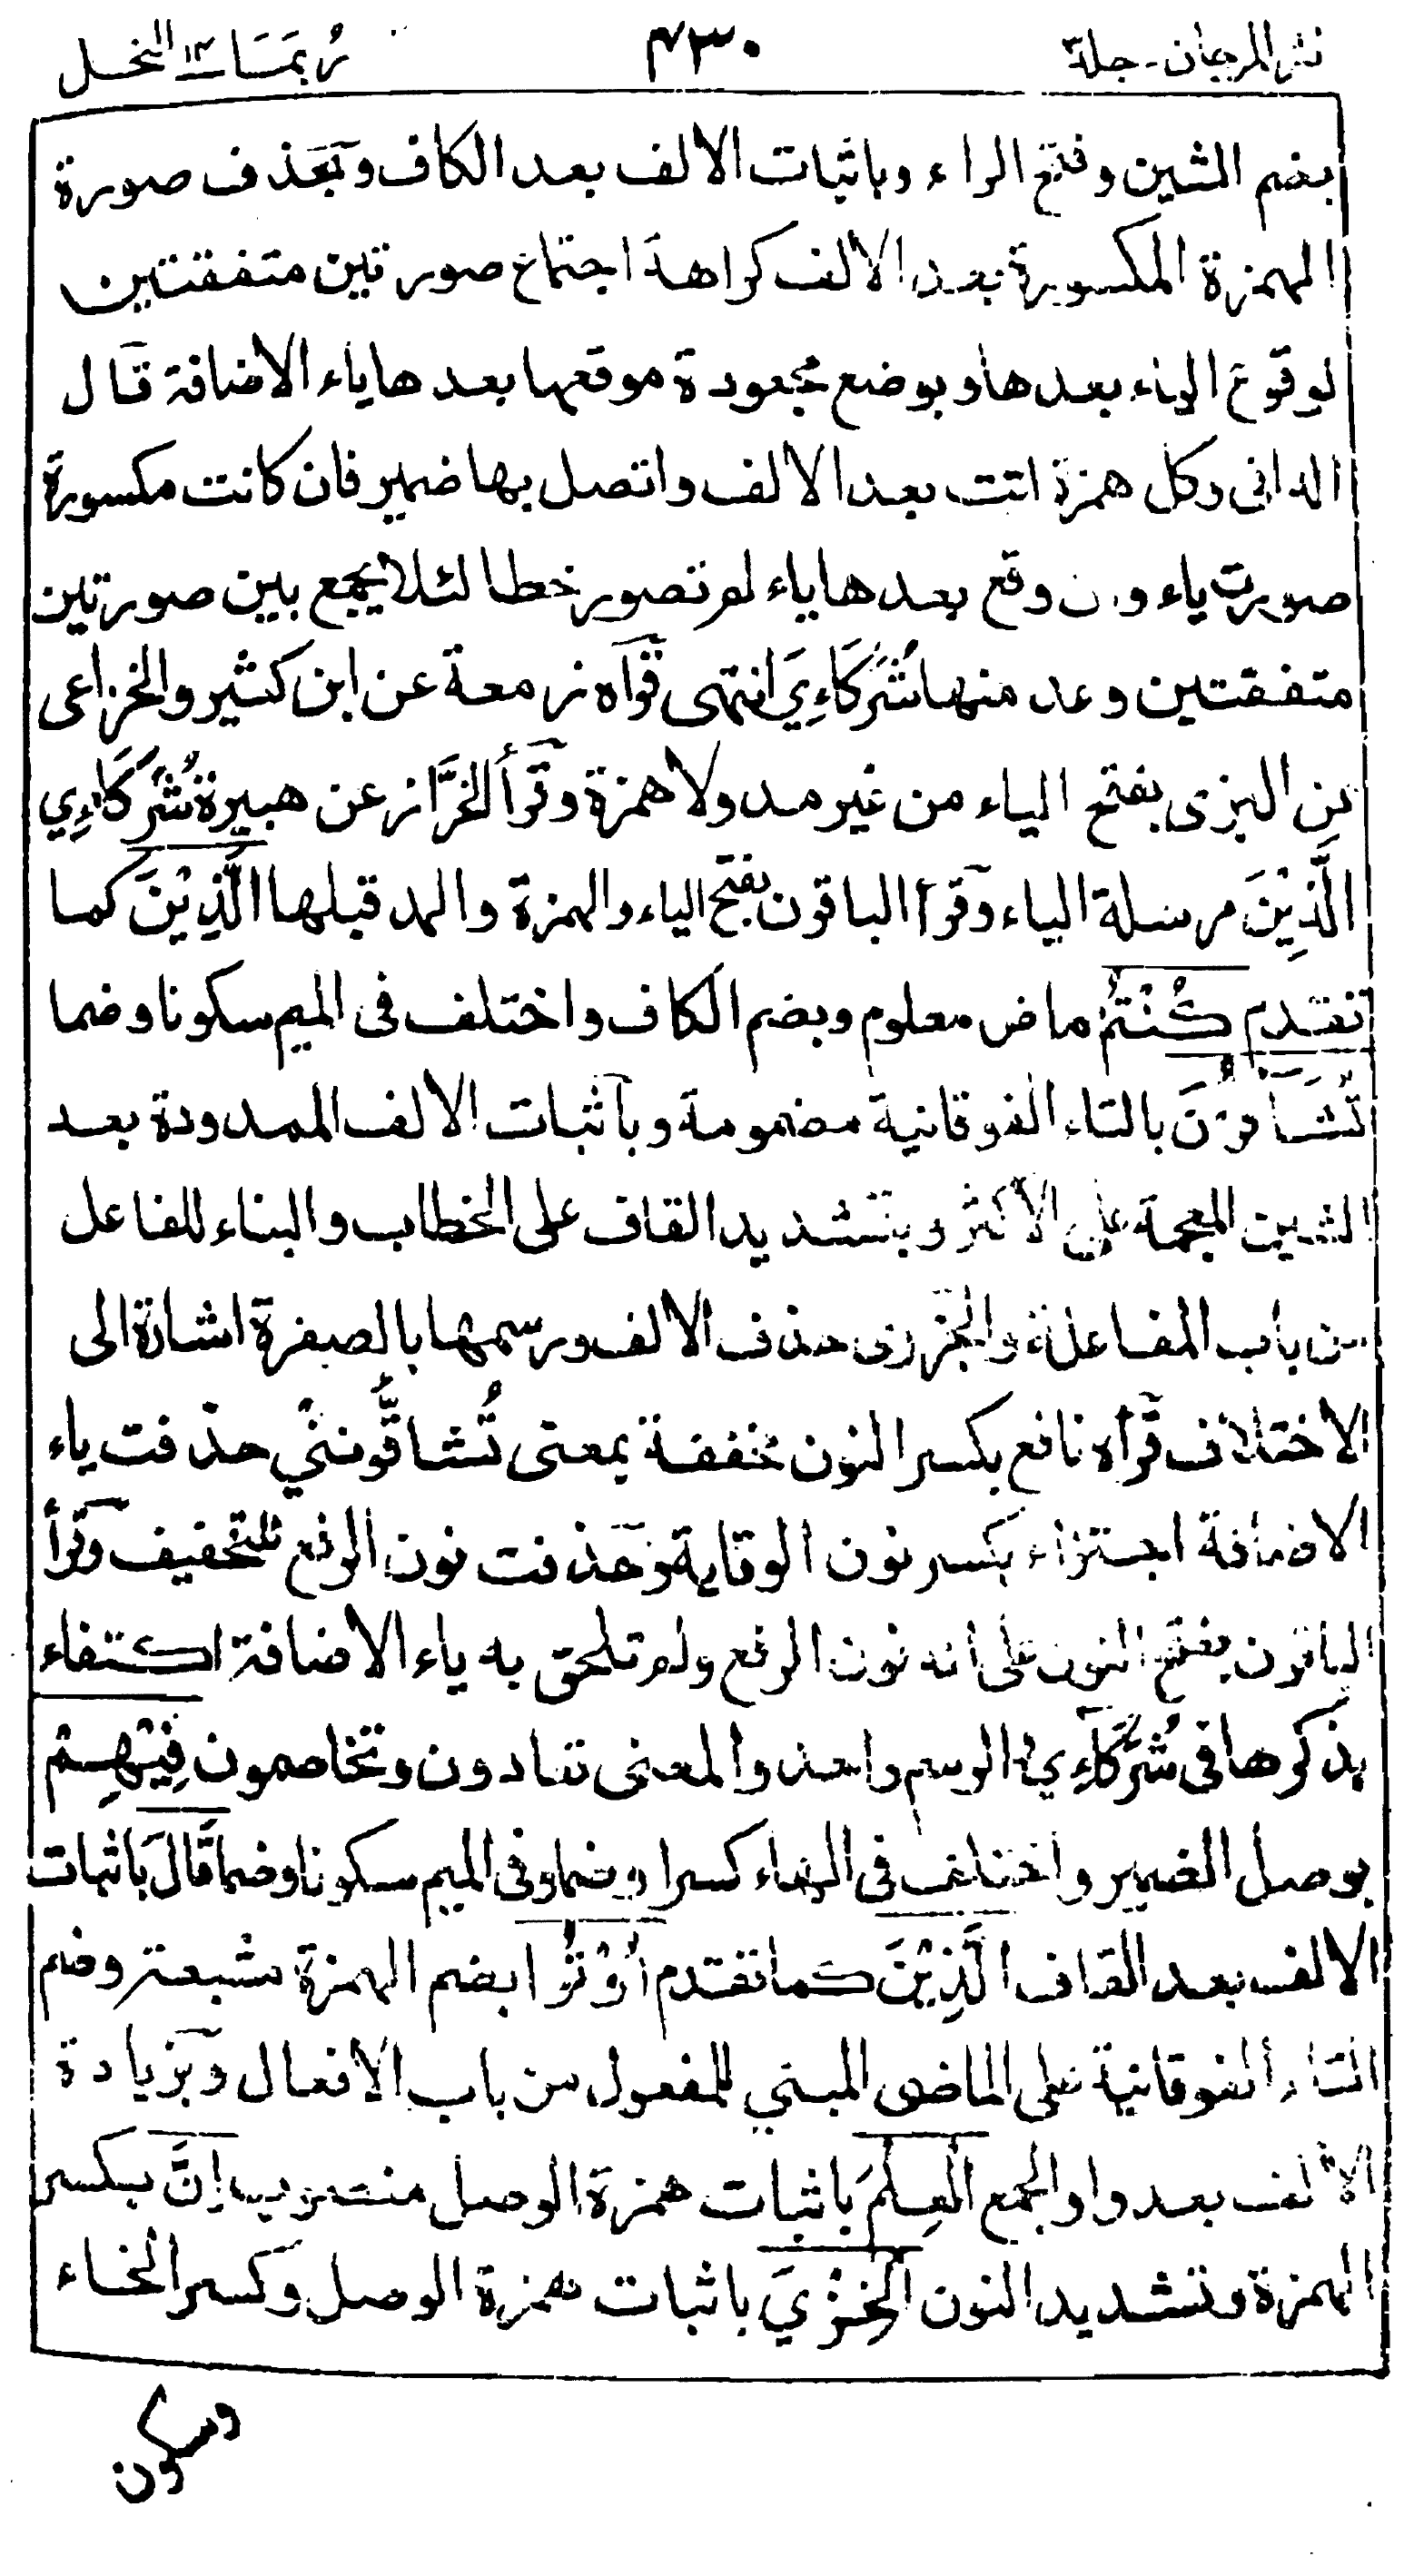 نثر المرجان - جلد ٣
٤٣٠
رُبَمَا ١٤ النحل
بضم الشين وفتح الراء وباثبات الالف بعد الكاف وبحذف صورة
الهمزة المكسورة بعد الالف كراهة اجتماع صورتين متفقتين
لوقوع الياء بعدها وبوضع مجعودة موقعها بعدها ياء الاضافة قال
الدانى وكل همزة اتت بعد الالف واتصل بها ضمير فان كانت مكسورة
صورت ياء وان وقع بعدها ياء لم تصور خطا لئلا يجمع بين صورتين
متفقتين وعد منها شُرَكَاءِيَ انتهى قرأه زمعة عن ابن كثير والخزاعى
عن البزى بفتح الياء من غير مد ولا همزة وقرأ الخَزَّاز عن هبيرة شُرَكَاءِي
الَّذِيْنَ مرسلة الياء وقرأ الباقون بفتح الياء والهمزة والمد قبلها الَّذِيْنَ كما
تقدم كُنْتُمْ ماض معلوم وبضم الكاف واختلف فى الميم سكونا وضما
تُشَآقُّوْنَ بالتاء الفوقانية مضمومة وباثبات الالف الممدودة بعد
الشين المعجمة على الاكثر وبتشديد القاف على الخطاب والبناء للفاعل
من باب المفاعلة والجزرى حذف الالف ورسمها بالصفرة اشارة الى
الاختلاف قرأه نافع بكسر النون مخففة بمعنى تُشَاقُّونَنِيْ حذفت ياء
الاضافة اجتزاء بكسر نون الوقاية وحذفت نون الرفع للتخفيف وقرأ
الباقون بفتح النون على انه نون الرفع ولم تلحق به ياء الاضافة اكتفاء
بذكرها فى شُرَكَآءِيَ الرسم واحد والمعنى تتادون وتخاصمون فِيْهِمْ
بوصل الضمير واختلف فى الهاء كسرا وضما وفى الميم سكونا وضما قَالَ باثبات
الالف بعد القاف الَّذِيْنَ كما تقدم اُوْتُوا بضم الهمزة مشبعة وضم
التاء الفوقانية على الماضى المبني للمفعول من باب الافعال وبزيادة
الالف بعد واو الجمع الْعِلْمَ باثبات همزة الوصل منصوب اِنَّ بكسر
الهمزة وتشديد النون الْخِزْيَ باثبات همزة الوصل وكسر الخاء
وسكون